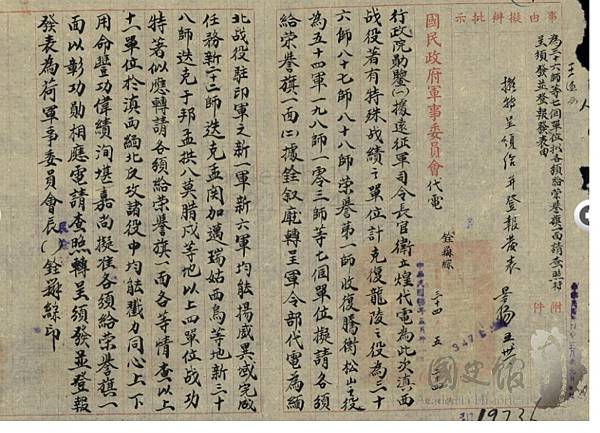 事由擬辦批示
為三十六師等七個單位擬各頒給榮譽旗一面請查照轉
呈頒發並登報發表由
擬轉呈頒給並登報發表
附件
國民政府軍事委員會代電
銓爵綜
三十四 五
行政院勛鑒(一)據遠征軍司令長官衛立煌代電為此次滇西
戰役著有特殊戰績之單位計克復龍陵之役為三十
六師八十七師八十八師榮譽第一師收復騰衝松山之役
為五十四軍一九八師一〇三師等七個單位擬請各頒
給榮譽旗一面(二)據銓敘廳轉呈軍令部代電為緬
北戰役駐印軍之新一軍新六軍均能揚威異域完成
任務新二十二師迭克孟關加邁瑞姑西烏等地新三十
八師迭克于邦孟拱八莫腊戍等地以上四單位戰功
特著似應轉請各頒給榮譽旗一面各等情查以上
十一單位於滇西緬北反攻諸役中均能戮力同心上下
用命豐功偉績洵堪嘉尚擬准各頒給榮譽旗一
面以彰功勛相應電請查照轉呈頒發並登報
發表為荷軍事委員會辰( )銓爵綜印
國史館
Academia Historica